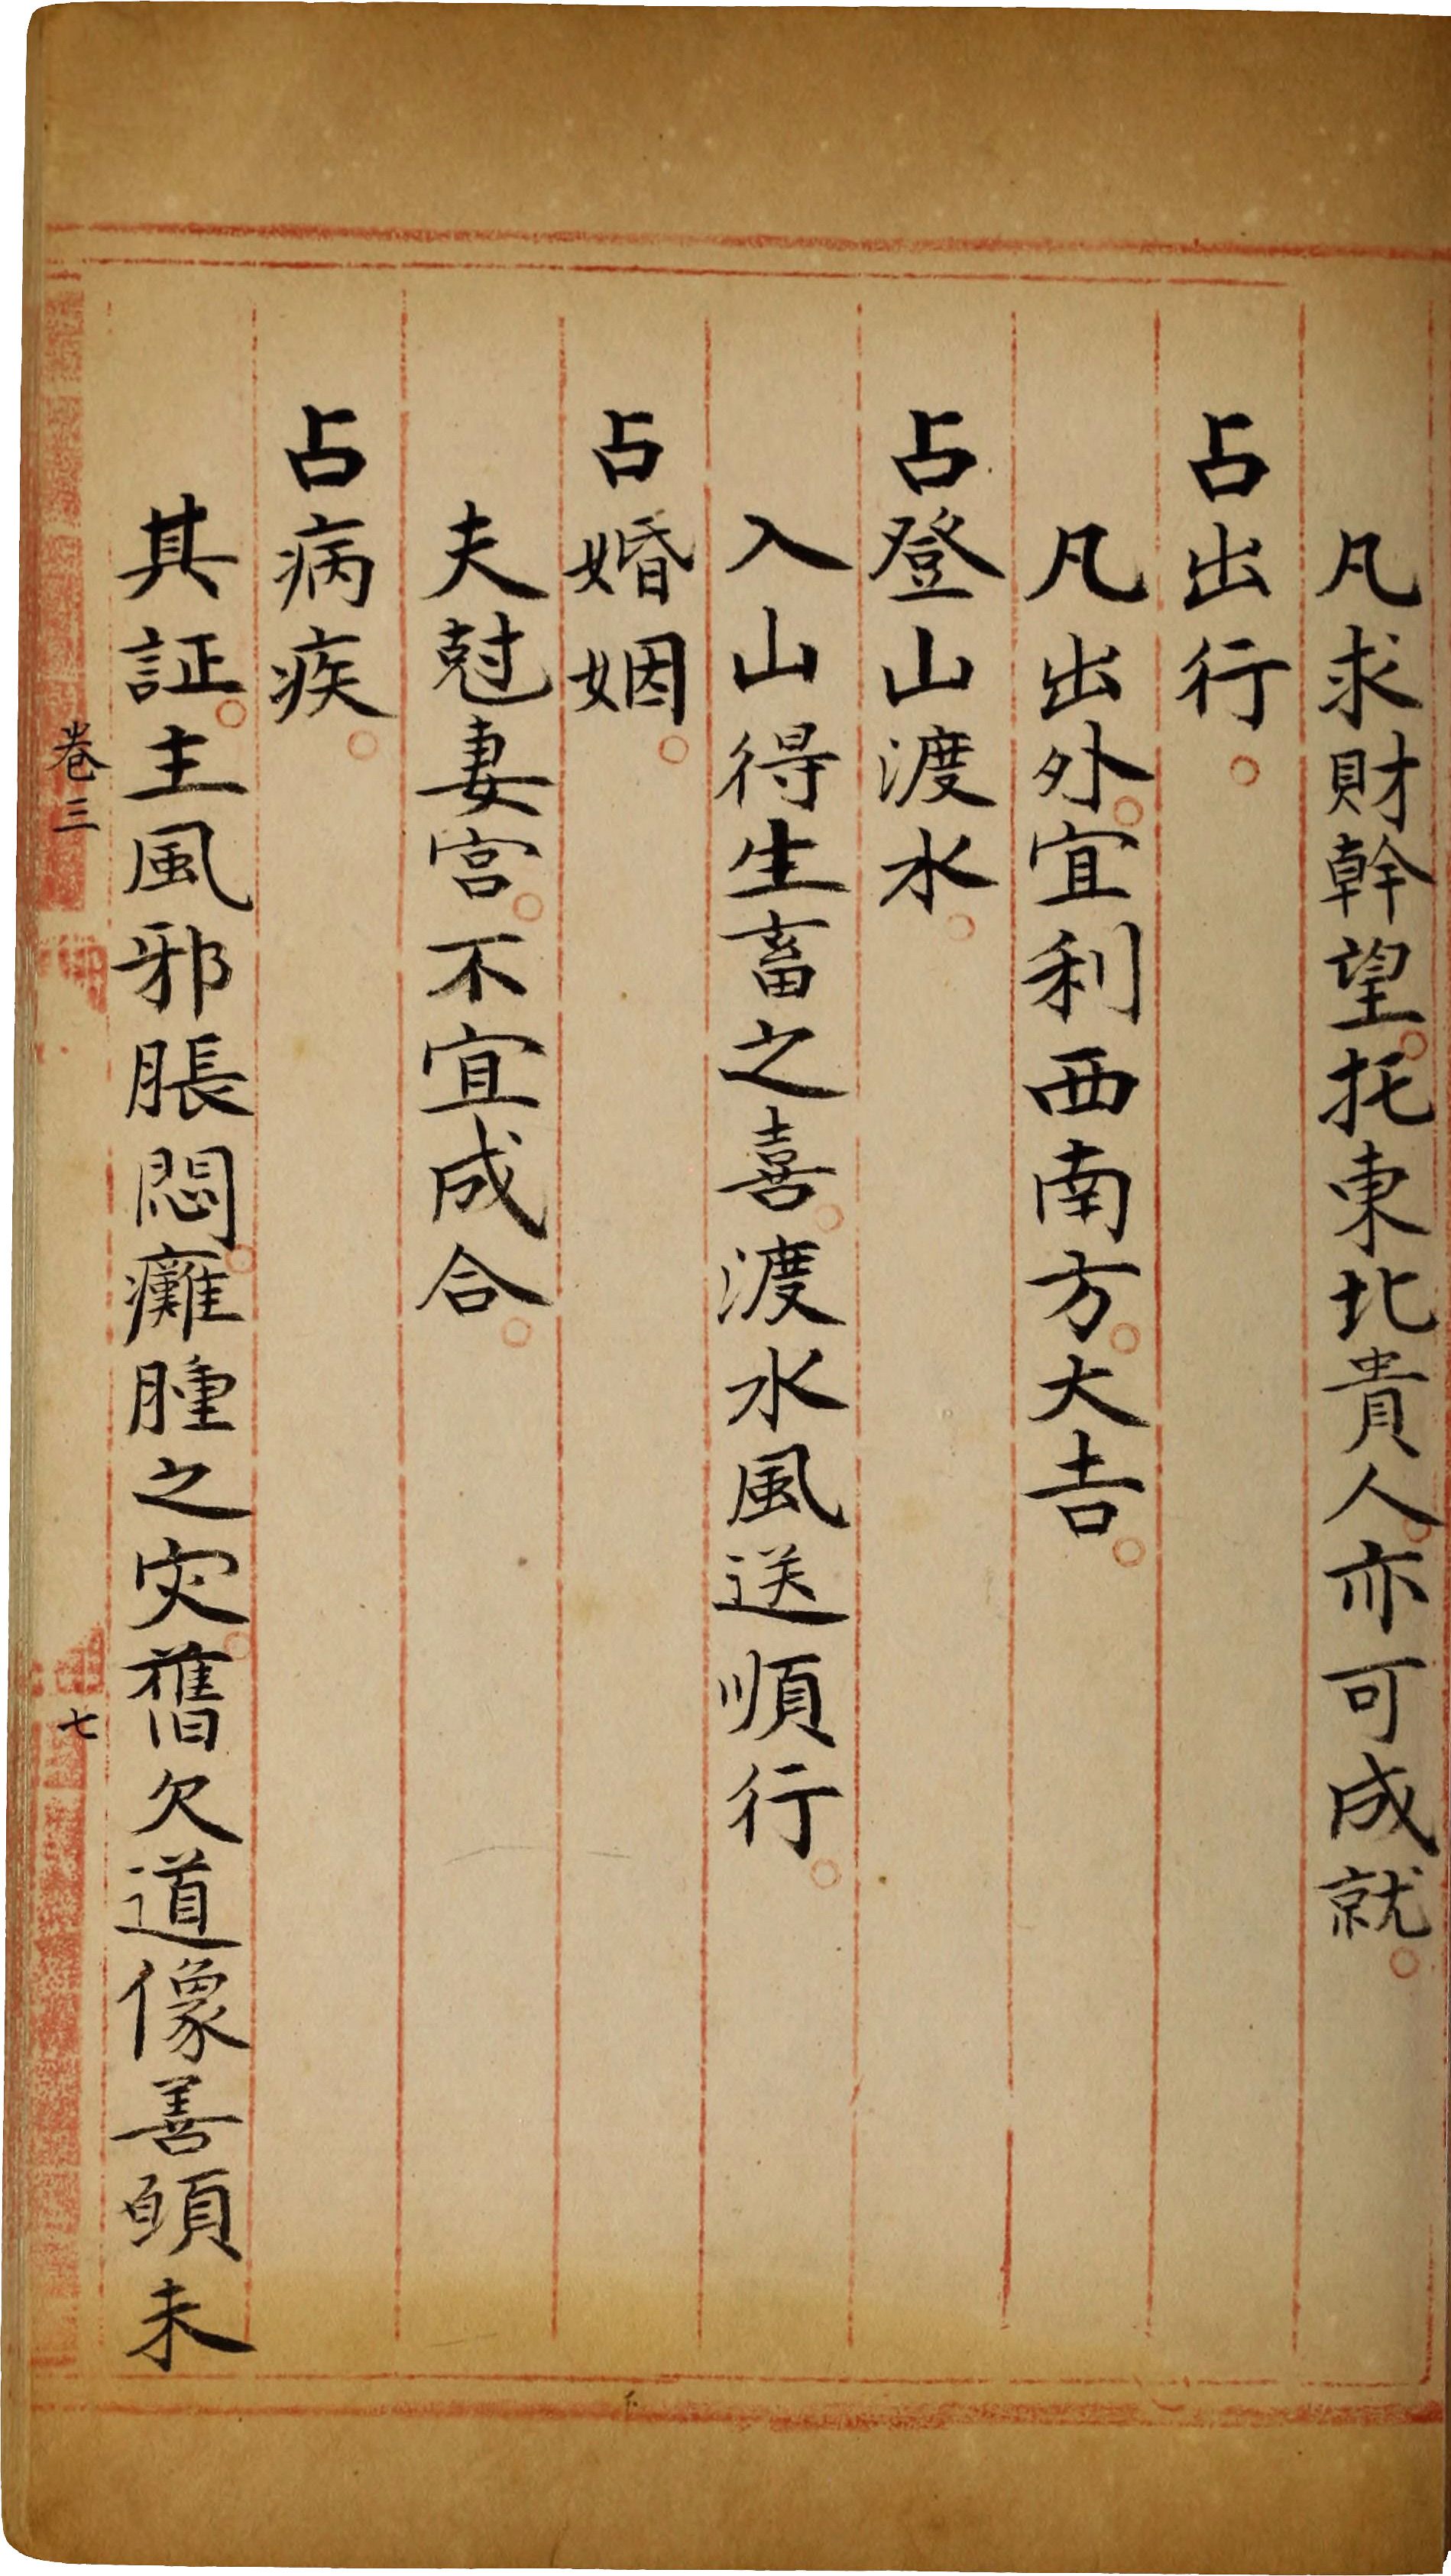 凡求財幹望。托東北貴人。亦可成就。
占出行。
凡出外。宜利西南方。大吉。
占登山渡水。
入山得生畜之喜。渡水風送順行。
占婚姻。
夫尅妻宫。不宜成合。
占病疾。
其証。主風邪脹悶。癱腫之灾。舊欠道像善願未
卷三
七